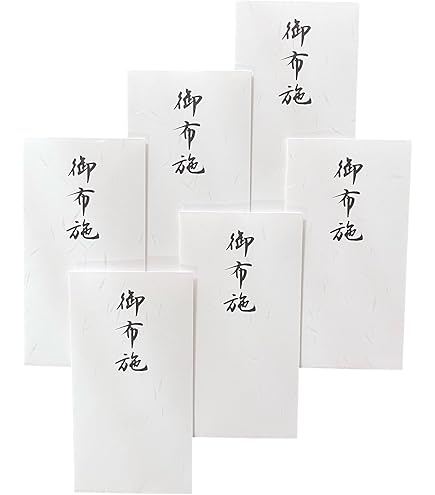 御布施
御布施
御布施
御布施
御布施
御布施